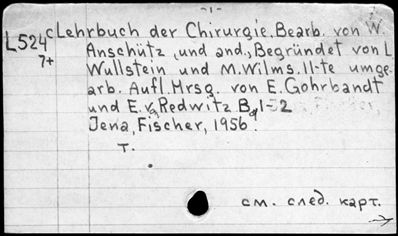 -1-
L524 c Lehrbuch der Chirurgie. Bearb. von W.
7+ Anschütz, und and., Begründet von L
Wullstein und M. Wilms. 11-te umge
arb. Aufl. Hrsg. von E. Gohrbandt
und E. v. Redwitz B 1-2
Jena, Fischer, 1956.
T.
см. след. карт.